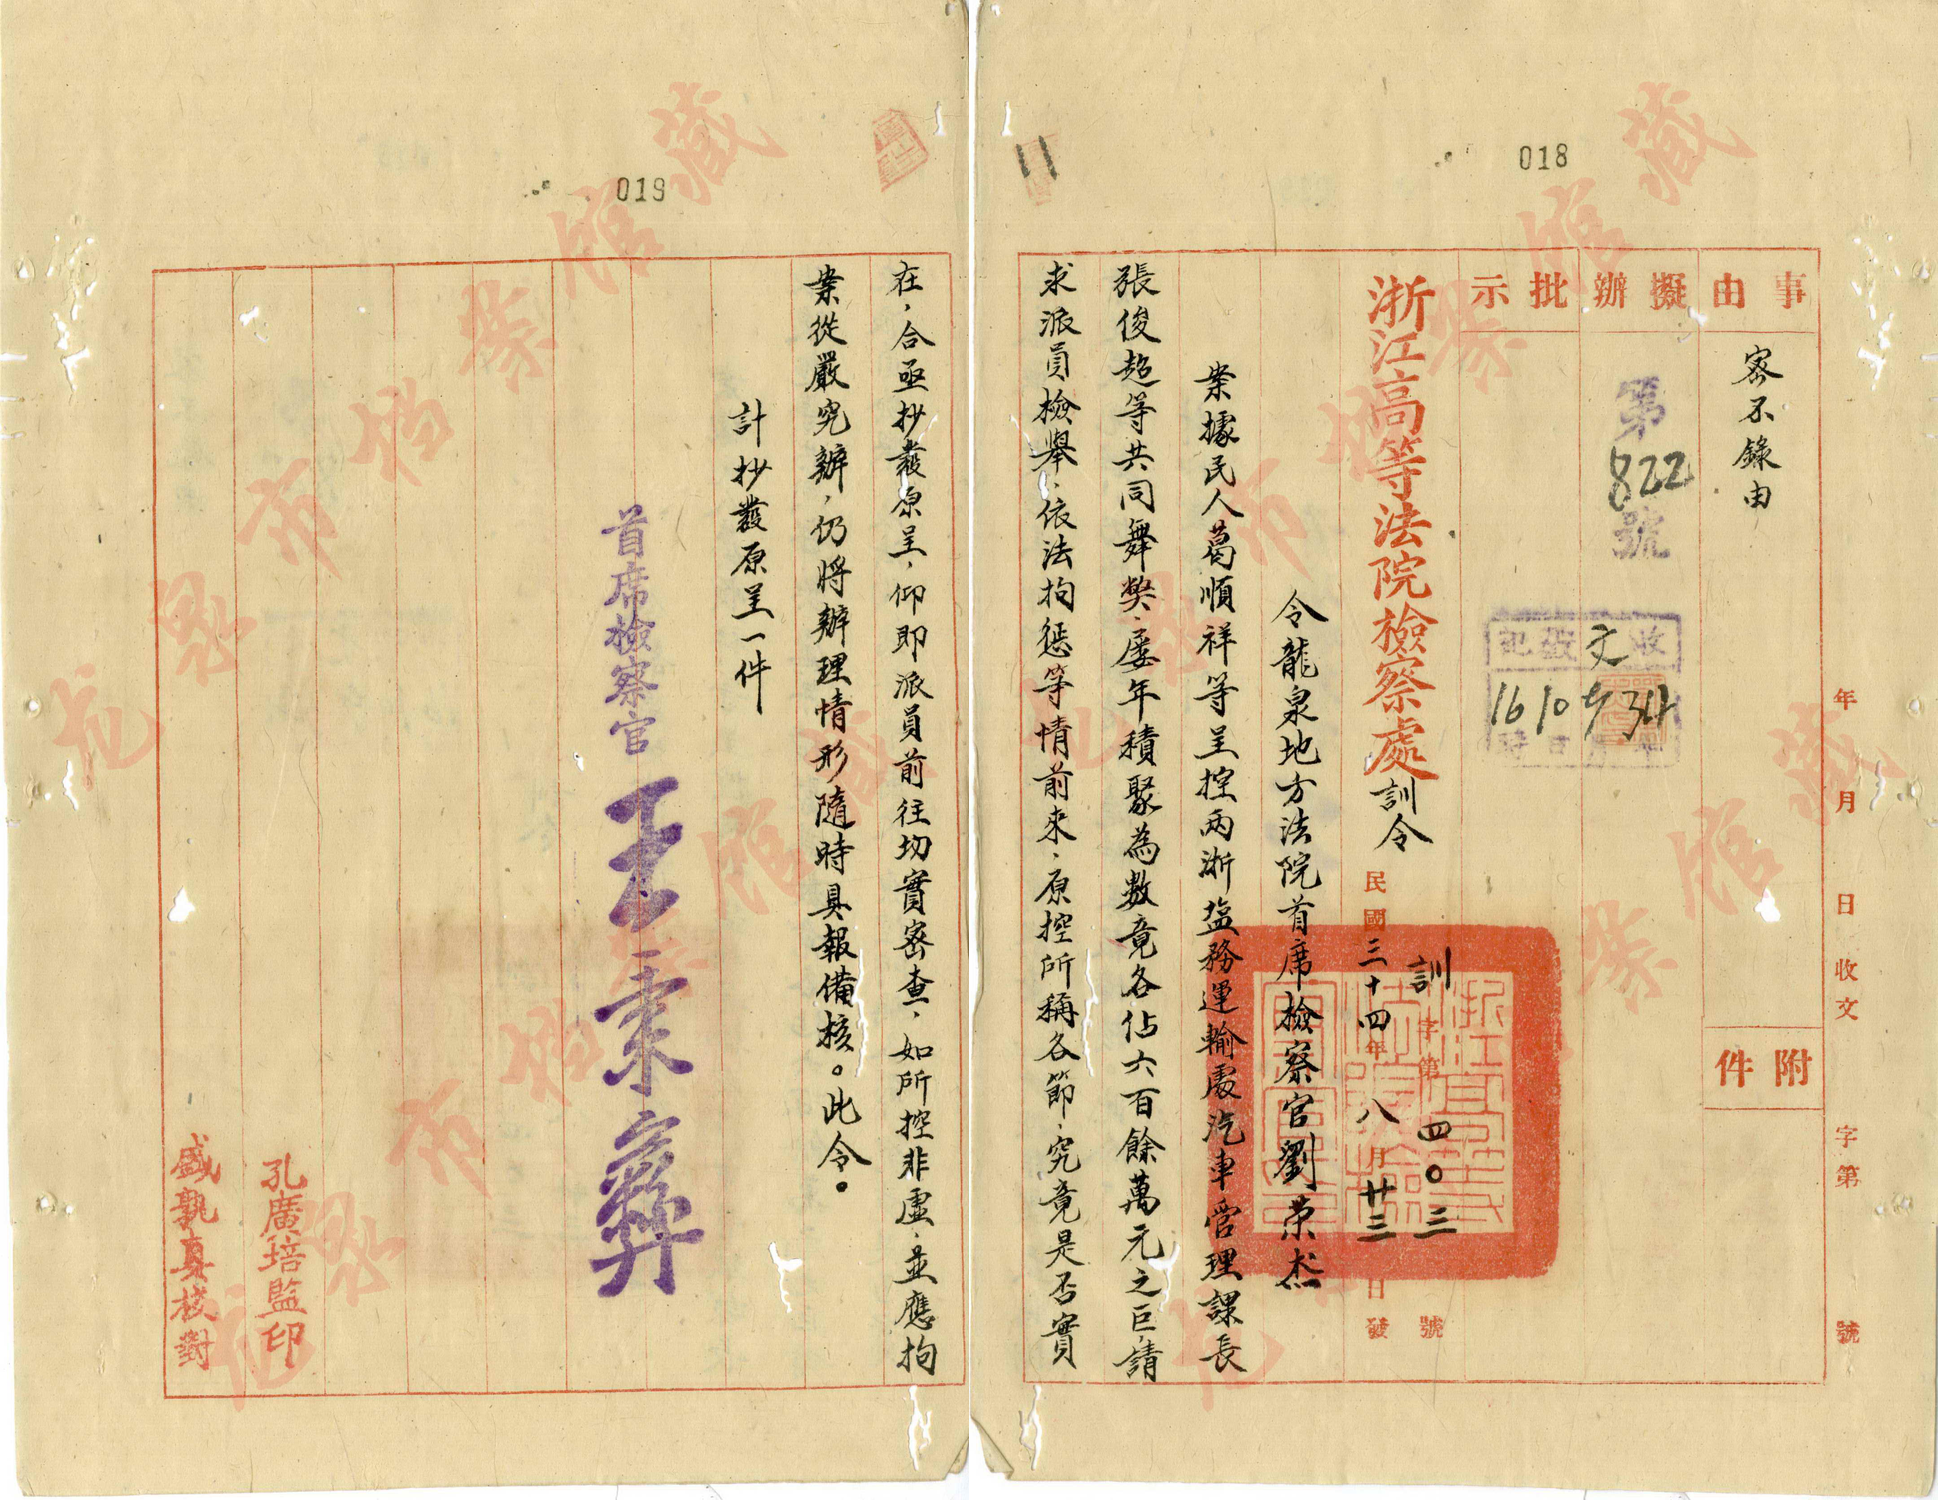 018
事由
擬辦
批示
附件
密不錄由
年 月 日 收文 字第 號
第822號
收文
34 9 10 16
浙江高等法院檢察處訓令
訓字第四〇三號
民國三十四年八月廿三日發
令龍泉地方法院首席檢察官劉荣杰
案據民人葛順祥等呈控兩浙塩務運輸處汽車管理課長
張俊超等共同舞獘,屢年積聚為數竟各佔六百餘萬元之巨,請
求派員檢舉,依法拘懲等情前來,原控所稱各節,究竟是否實
019
在,合亟抄發原呈,仰即派員前往切實密查,如所控非虛,並應拘
案從嚴究辦,仍將辦理情形隨時具報備核。此令。
計抄發原呈一件
首席檢察官王秉彝
孔廣培監印
盛孰真核對
龙泉市档案馆藏
龙泉市档案馆藏
龙泉市档案馆藏
龙泉市档案馆藏